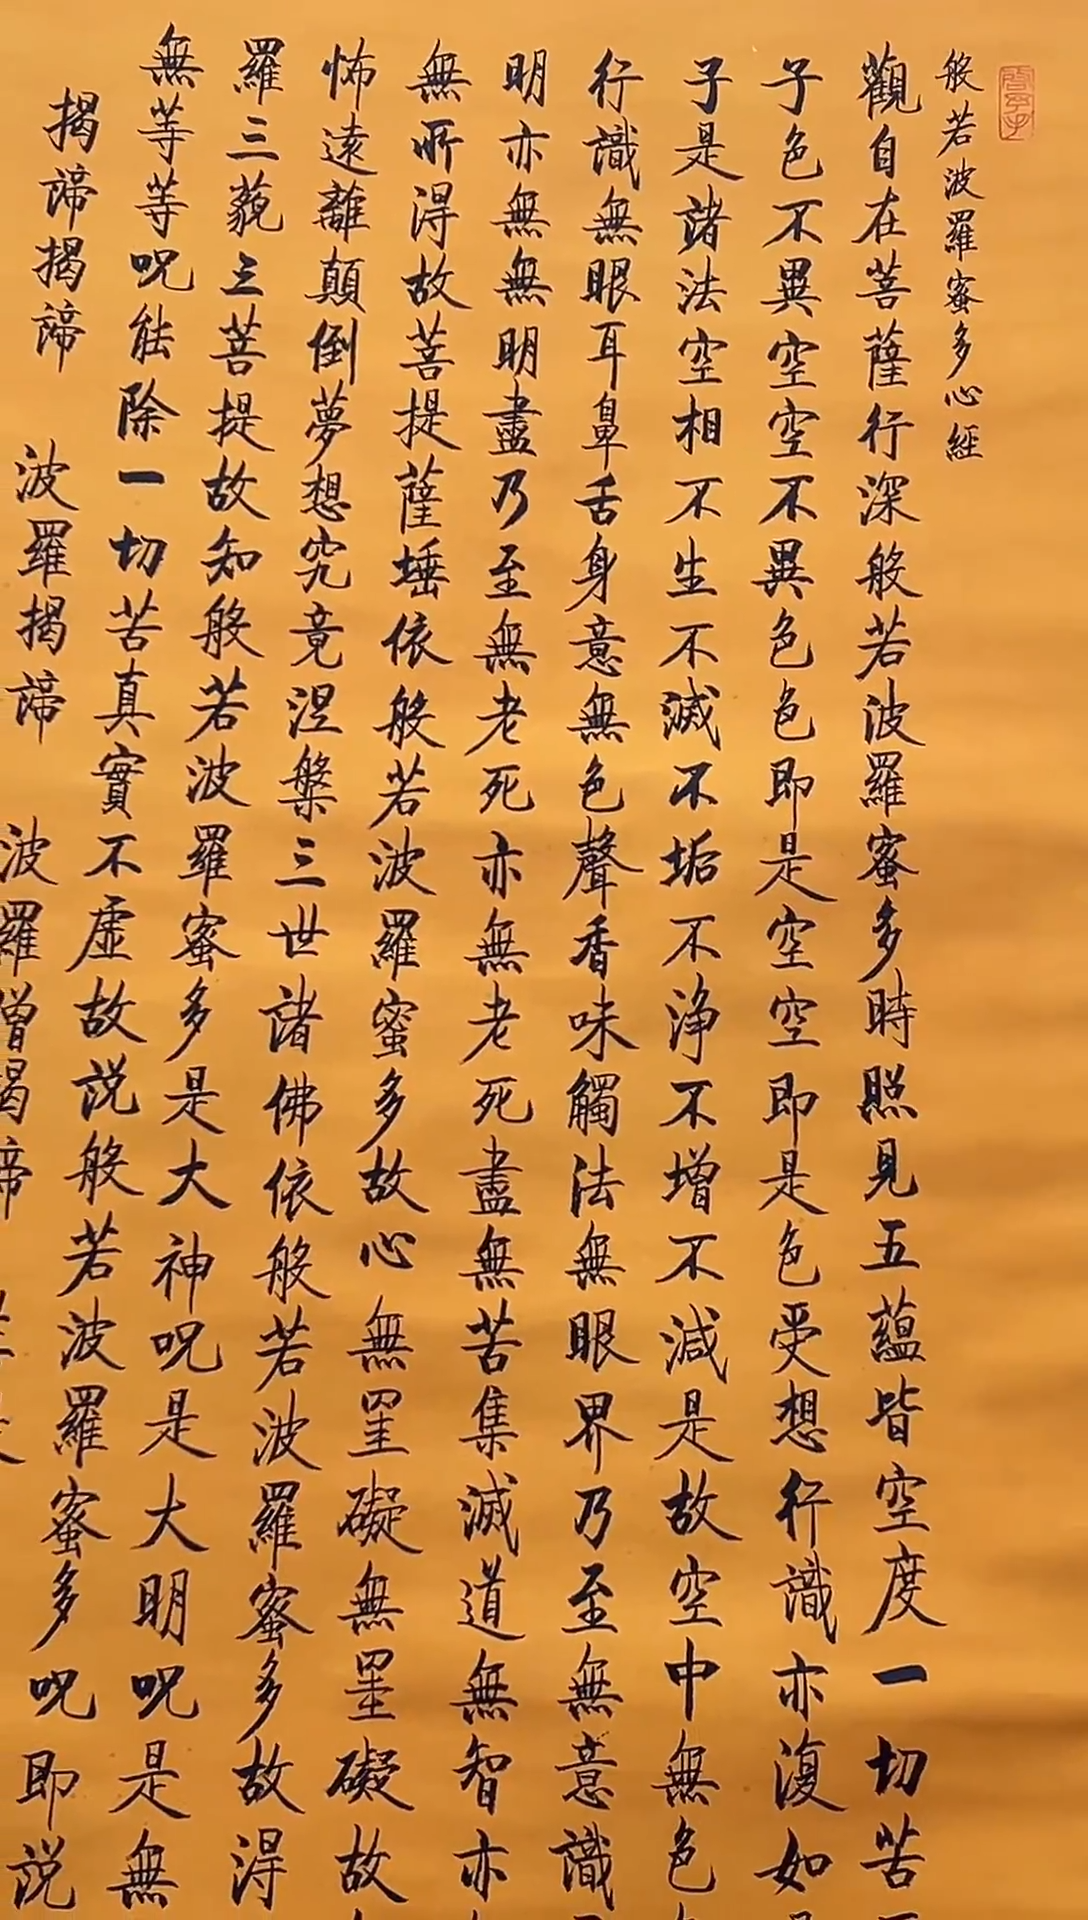 般若波羅蜜多心經
觀自在菩薩行深般若波羅蜜多時照見五蘊皆空度一切苦
子色不異空空不異色色即是空空即是色受想行識亦復如
子是諸法空相不生不滅不垢不淨不增不減是故空中無色
行識無眼耳鼻舌身意無色聲香味觸法無眼界乃至無意識
明亦無無明盡乃至無老死亦無老死盡無苦集滅道無智亦
無所得故菩提薩埵依般若波羅蜜多故心無罣礙無罣礙故
怖遠離顛倒夢想究竟涅槃三世諸佛依般若波羅蜜多故得
羅三藐三菩提故知般若波羅蜜多是大神呪是大明呪是無
無等等呪能除一切苦真實不虛故説般若波羅蜜多呪即説
揭諦揭諦 波羅揭諦 波羅僧揭諦